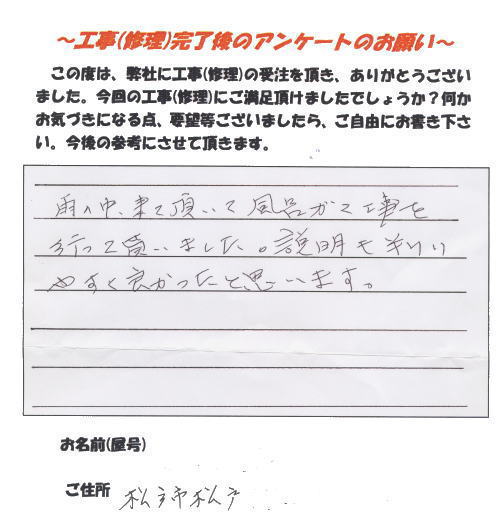 ～工事(修理)完了後のアンケートのお願い～
この度は、弊社に工事(修理)の受注を頂き、ありがとうござい
ました。今回の工事(修理)にご満足頂けましたでしょうか？何か
お気づきになる点、要望等ございましたら、ご自由にお書き下さ
い。今後の参考にさせて頂きます。
雨の中、来て頂いて風呂がま工事を
行って貰いました。説明も判り
やすく良かったと思います。
お名前(屋号)
ご住所 松戸市松戸